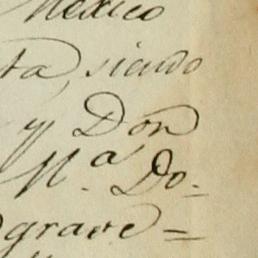 Mexico
ta, siendo
y Don
M.ª Do-
grave=